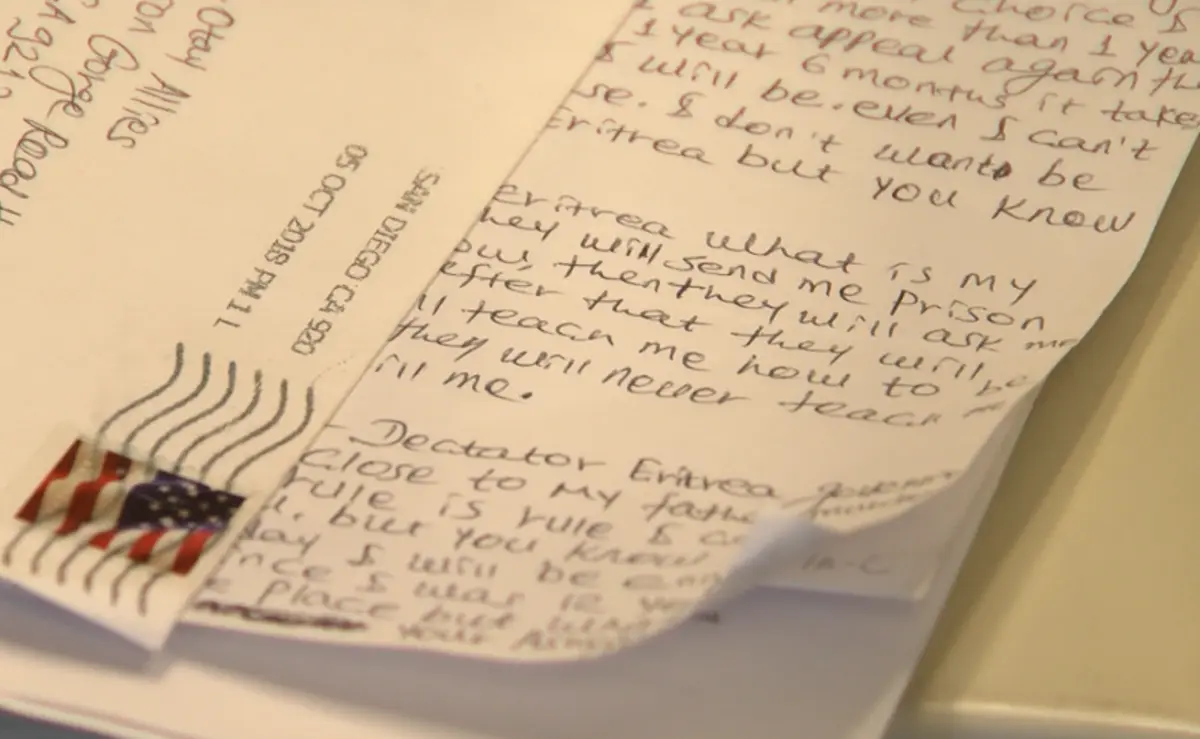 Otay Allies
Road
SAN DIEGO CA 920
05 OCT 2018 PM 1 L
choice I
more than 1 yea
ask appeal again th
1 year 6 months it take
I will be. even I can't
se. I don't want be
Eritrea but you know
eritrea what is my
hey will send me prison
ow, then they will ask me
efter that they will be
ll teach me how to
they will never teach me
ill me.
Dectator Eritrea
close to my fathe
rule is rule I c
but you know
day I will be
nce I was 12 ye
e place but
your